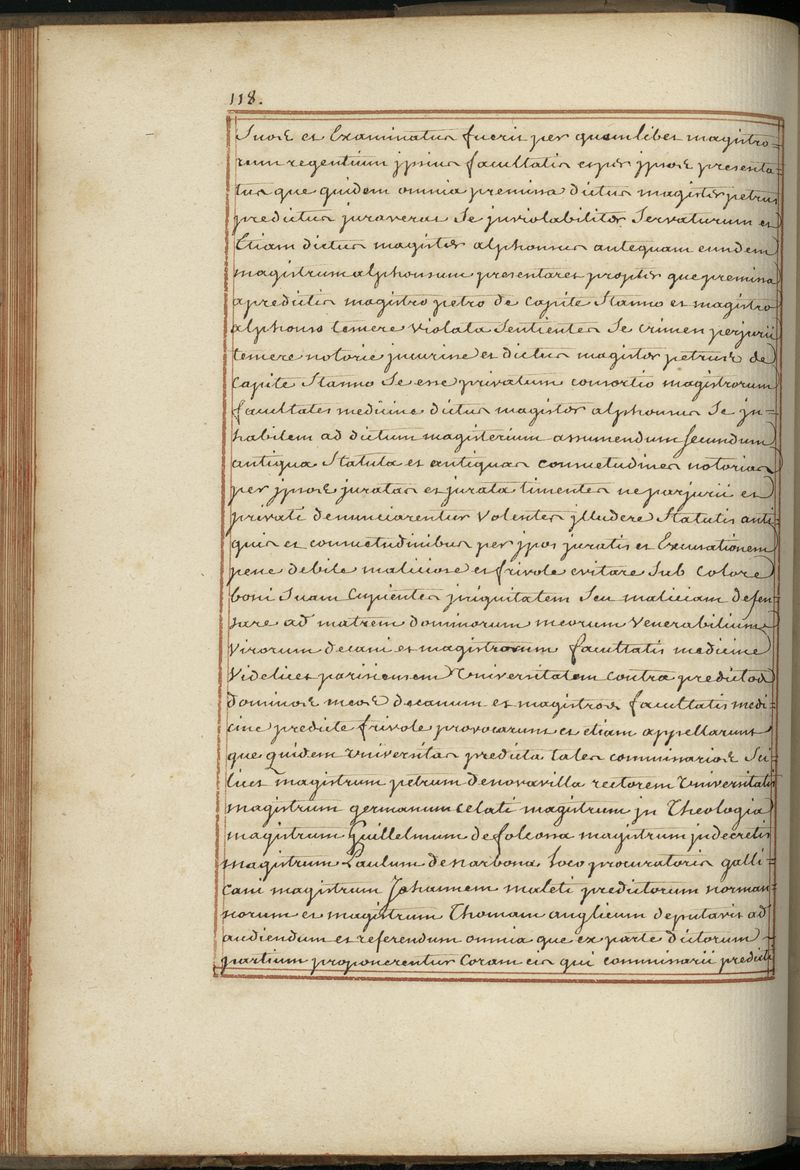 118.
Suos et Examinatus fuerit per quemlibet magistro-
rum regentium jpsius facultatis et per jpsos presenta-
tus que quidem omnia premissa dictus magister petrus
predictus juraverat se jnviolabiliter Servaturum et
Etiam dictus magister alphonsus antequam eundem
magistrum alphonsum presentaret propter que premissa
a predictis magistro petro de Capite Stanno et magistro
alphonso temere violata Sentientes Se crimen perjurii
temere notorie jncurisse et dictus magister petrus de
Capite Stanno Se esse privatum consortio magistrorum
facultates medicine dictus magister alphonsus Se jn-
habilem ad dictum magisterium assumendum secundum
antiqua Statuta et antiquas consuetudines notorias
per jpsos juratas et jurata timentes ne parjurii et
privati denunciarentur Volentes jlludere Statutis anti-
quis et consuetudinibus per jpos juratis et Excusationem
pene debite maliciose et frivole evitare Sub Colore
boni Suam Cupientes jniquitatem Seu maliciam defen-
sare ad matrem dominorum meorum Venerabilium
Virorum decani et magistrorum facultatis medicine
Videlicet parisiensem Universitatem contra predictos
dominos meos decanum et magistros facultatis medi-
cine predicte frivole provocarunt et etiam appellarunt
que quidem Universitas predicta tales commissarios Sci-
licet magistrum petrum de novavilla rectorem Universitatis
magistrum germanum celati magistrum jn Theologia
magistrum Guillelmum de folcona magistrum jn decretis
magistrum Paulum de narbona loco procuratoris galli-
cani magistrum Johannem maleti predictorum norman-
norum et magistrum Thomam anglicum deputavit ad
audiendum et referendum omnia que ex parte dictorum
partium proponerentur Coram eis qui commissarii predicti